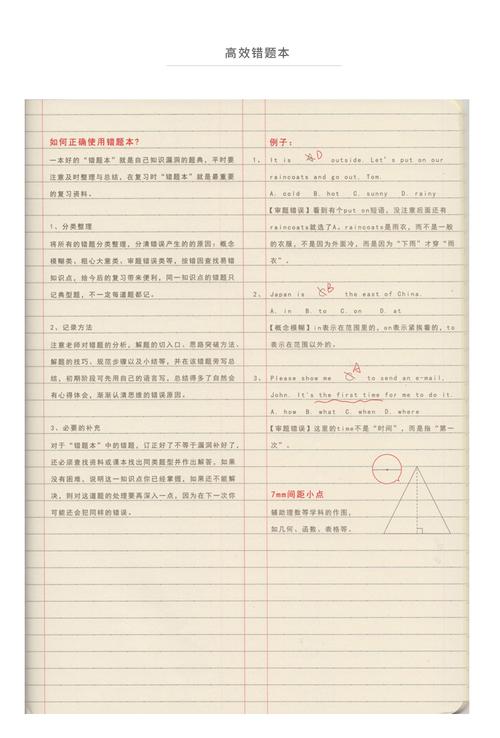 高效错题本
如何正确使用错题本?
一本好的“错题本”就是自己知识漏洞的题典，平时要
注意及时整理与总结，在复习时“错题本”就是最重要
的复习资料。
1、分类整理
将所有的错题分类整理，分清错误产生的的原因：概念
模糊类、粗心大意类、审题错误类等，按错因查找易错
知识点，给今后的复习带来便利，同一知识点的错题只
记典型题，不一定每道题都记。
2、记录方法
注意老师对错题的分析，解题的切入口、思路突破方法、
解题的技巧、规范步骤以及小结等，并在该错题旁写总
结，初期阶段可先用自己的语言写，总结得多了自然会
有心得体会，渐渐认清思维的错误原因。
3、必要的补充
对于“错题本”中的错题，订正好了不等于漏洞补好了，
还必须查找资料或课本找出同类题型并作出解答，如果
没有困难，说明这一知识点你已经掌握，如果还不能解
决，则对这道题的处理要再深入一点，因为在下一次你
可能还会犯同样的错误。
例子：
1、 It is A D outside. Let's put on our
raincoats and go out, Tom.
A. cold B. hot C. sunny D. rainy
【审题错误】看到有个put on短语，没注意后面还有
raincoats就选了A。raincoats是雨衣，而不是一般
的衣服，不是因为外面冷，而是因为“下雨”才穿“雨
衣”。
2、 Japan is B the east of China.
A. in B. to C. on D. at
【概念模糊】in表示在范围里的，on表示紧挨着的，to
表示在范围以外的。
3、 Please show me A to send an e-mail,
John. It's the first time for me to do it.
A. how B. what C. when D. where
【审题错误】这里的time不是“时间”，而是指“第一
次”。
7mm间距小点
辅助理数等学科的作图，
如几何、函数、表格等。